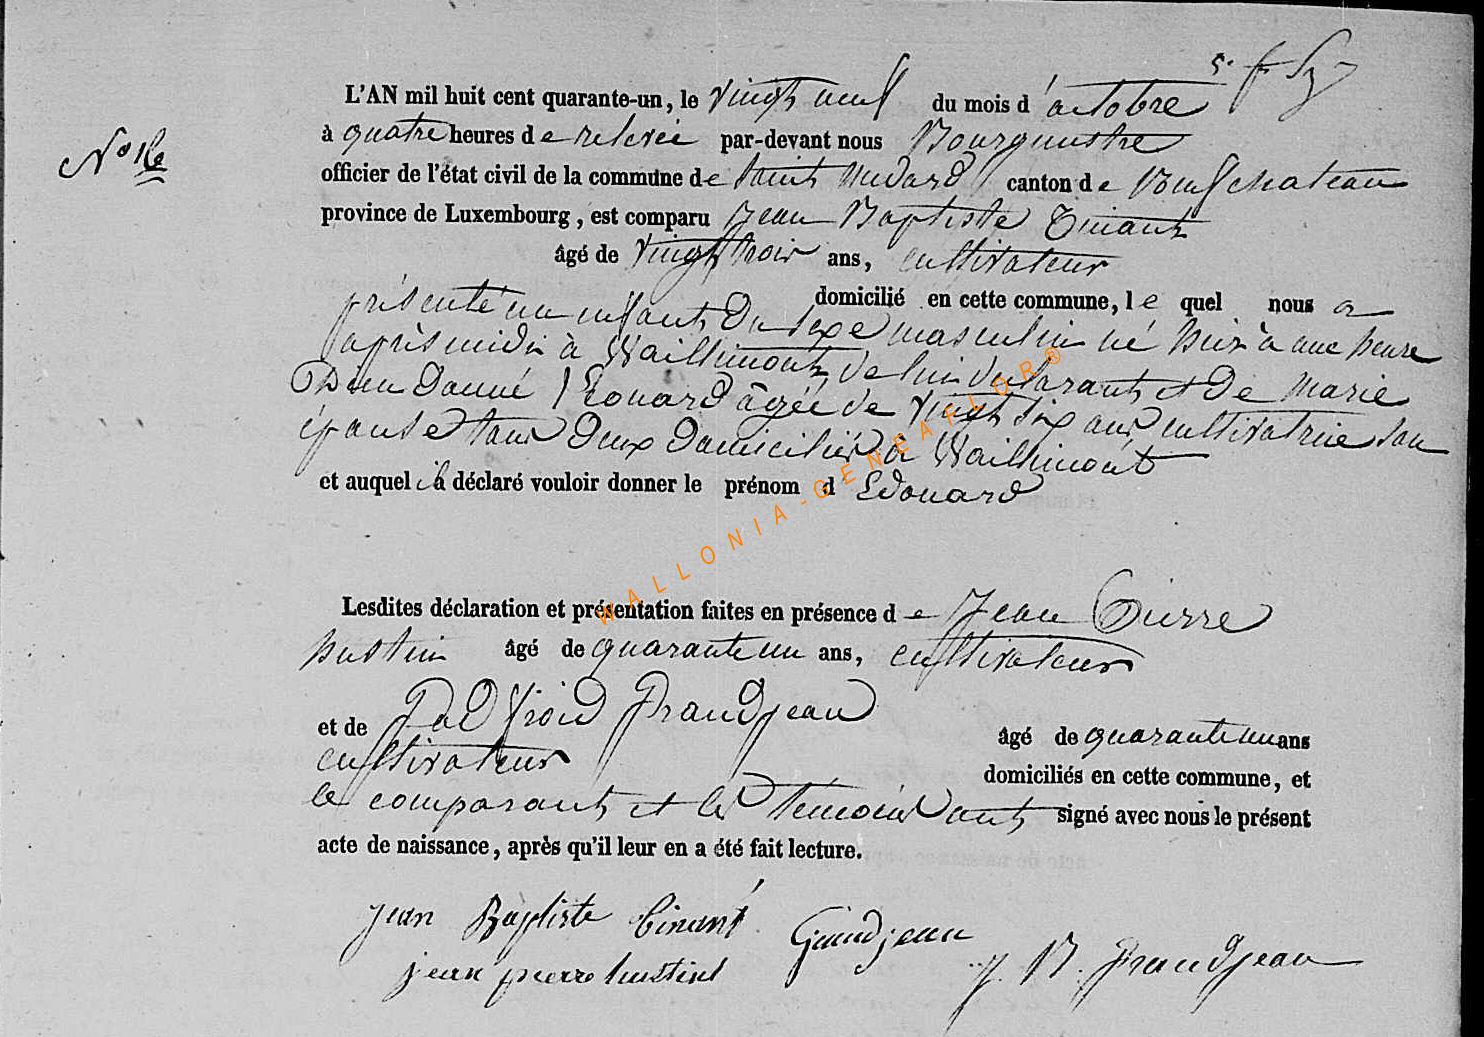 L'AN mil huit cent quarante-un, le vingt neuf du mois d'octobre
à quatre heures de relevée par-devant nous Bourguustre
officier de l'état civil de la commune de saint medard canton de Neufchateau
province de Luxembourg, est comparu Jean Baptiste Tinant
âgé de vingt trois ans, cultivateur
domicilié en cette commune, le quel nous a
présenté un enfant du sexe masculin né hier à une heure
après midi à Waillimont de lui déclarant et de Marie
Dieu donné Edouard âgée de vingt six ans cultivatrice son
épouse tous deux domiciliés à Waillimont
et auquel il a déclaré vouloir donner le prénom d Edouard
Nº 16
WALLONIA-GENEAFLOR®
Lesdites déclaration et présentation faites en présence de Jean Pierre
hustin âgé de quarante un ans, cultivateur
et de Godfroid Grandjean âgé de quarante un ans
cultivateur domiciliés en cette commune, et
le comparant et les témoins ont signé avec nous le présent
acte de naissance, après qu'il leur en a été fait lecture.
jean Baptiste tinant Grandjean
jean pierre hustin J. B. Grandjean